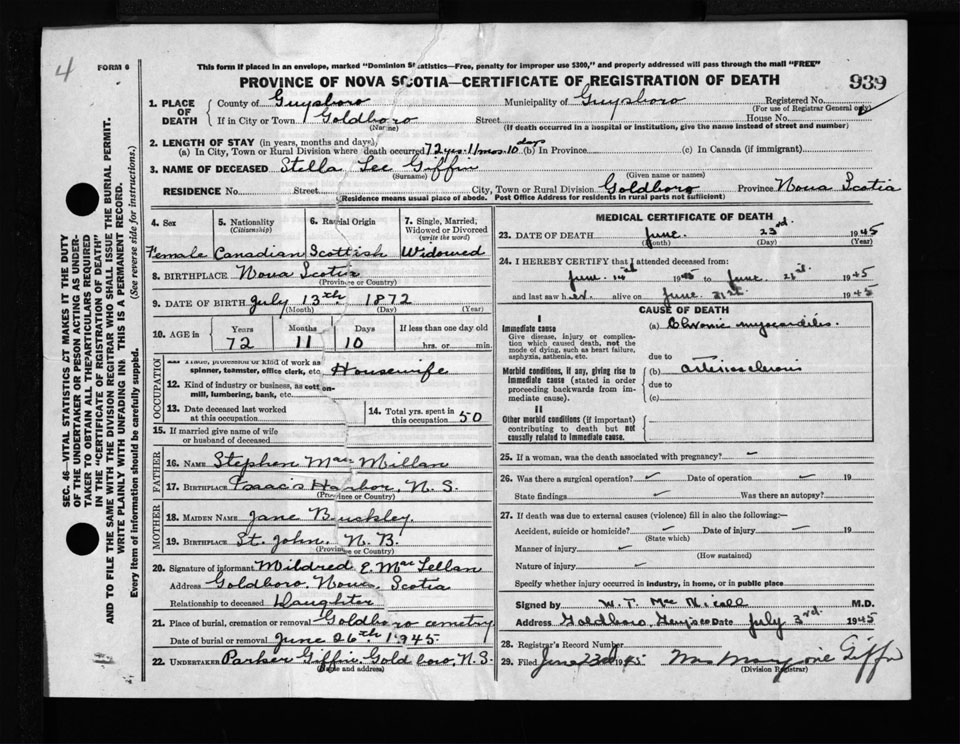 4 FORM 6
This form if placed in an envelope, marked "Dominion Statistics—Free, penalty for improper use $300," and properly addressed will pass through the mail "FREE"
PROVINCE OF NOVA SCOTIA—CERTIFICATE OF REGISTRATION OF DEATH 939
1. PLACE OF DEATH County of Guysboro Municipality of Guysboro Registered No. (For use of Registrar General only)
If in City or Town Goldboro (Name) Street House No.
(If death occurred in a hospital or institution, give the name instead of street and number)
2. LENGTH OF STAY (in years, months and days)
(a) In City, Town or Rural Division where death occurred 72 yrs. 11 mos. 10 days (b) In Province (c) In Canada (if immigrant)
3. NAME OF DECEASED Stella Lee Giffin
(Surname) (Given name or names)
RESIDENCE No. Street City, Town or Rural Division Goldboro Province Nova Scotia
(Residence means usual place of abode. Post Office Address for residents in rural parts not sufficient)
SEC. 46—VITAL STATISTICS ACT MAKES IT THE DUTY
OF THE UNDERTAKER OR PESON ACTING AS UNDER-
TAKER TO OBTAIN ALL THE PARTICULARS REQUIRED
IN THE "CERTIFICATE OF REGISTRATION OF DEATH"
AND TO FILE THE SAME WITH THE DIVISION REGISTRAR WHO SHALL ISSUE THE BURIAL PERMIT.
WRITE PLAINLY WITH UNFADING INK THIS IS A PERMANENT RECORD.
Every item of information should be carefully supplied. (See reverse side for instructions.)
4. Sex 5. Nationality (Citizenship) 6. Racial Origin 7. Single, Married, Widowed or Divorced (write the word)
Female Canadian Scottish Widowed
8. BIRTHPLACE Nova Scotia
(Province or Country)
9. DATE OF BIRTH July 13th 1872
(Month) (Day) (Year)
10. AGE in Years Months Days If less than one day old
72 11 10 hrs. or min.
OCCUPATION
11. Trade, profession or kind of work as
spinner, teamster, office clerk, etc. Housewife
12. Kind of industry or business, as cotton-
mill, lumbering, bank, etc.
13. Date deceased last worked at this occupation 14. Total yrs. spent in this occupation 50
15. If married give name of wife
or husband of deceased
FATHER
16. NAME Stephen MacMillan
17. BIRTHPLACE Isaac's Harbor, N.S.
(Province or Country)
MOTHER
18. MAIDEN NAME Jane Buckley
19. BIRTHPLACE St. John, N.B.
(Province or Country)
20. Signature of informant Mildred E. MacLellan
Address Goldboro, Nova Scotia
Relationship to deceased Daughter
21. Place of burial, cremation or removal Goldboro cemetery
Date of burial or removal June 26th 1945
22. UNDERTAKER Parker Giffin, Goldboro, N.S.
(Name and address)
MEDICAL CERTIFICATE OF DEATH
23. DATE OF DEATH June 23rd. 1945
(Month) (Day) (Year)
24. I HEREBY CERTIFY that I attended deceased from:
June 14th 1945 to June 21st. 1945
and last saw her alive on June 21st. 1945
CAUSE OF DEATH
I
Immediate cause (a) Chronic myocarditis.
Give disease, injury or complica-
tion which caused death, not the
mode of dying, such as heart failure,
asphyxia, asthenia, etc. due to
Morbid conditions, if any, giving rise to (b) arteriosclerosis
immediate cause (stated in order due to
proceeding backwards from im-
mediate cause). (c)
II
Other morbid conditions (if important)
contributing to death but not
causally related to immediate cause.
25. If a woman, was the death associated with pregnancy?
26. Was there a surgical operation? Date of operation 19
State findings Was there an autopsy?
27. If death was due to external causes (violence) fill in also the following:-
Accident, suicide or homicide? Date of injury 19
(State which)
Manner of injury
(How sustained)
Nature of injury
Specify whether injury occurred in industry, in home, or in public place
Signed by W. T. MacNicoll M.D.
Address Goldboro, Guys. co Date July 3rd. 1945
28. Registrar's Record Number
29. Filed June 23rd 1945 Mrs Marjorie Giffin
(Division Registrar)